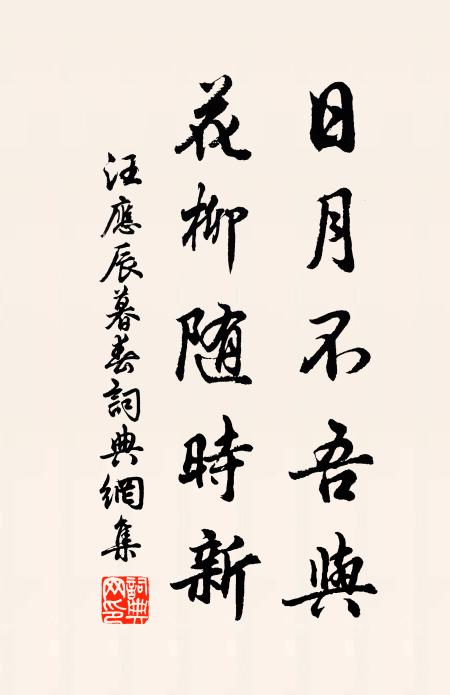 日月不吾與
花柳随時新
汪應辰暮春詞典網集
詞典
网印